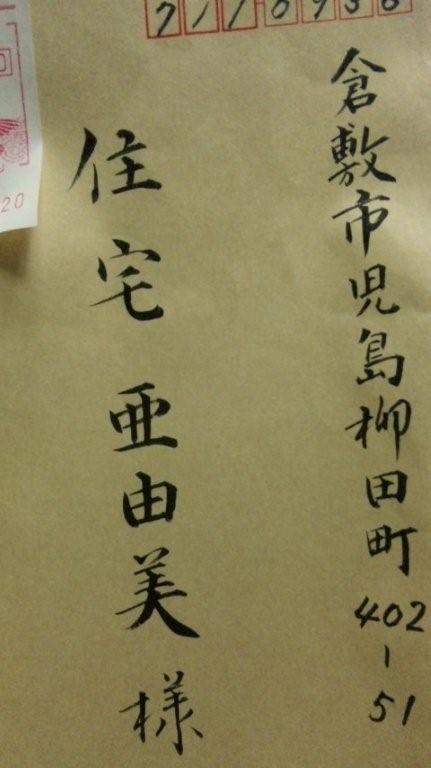 7110936
倉敷市児島柳田町402-51
住宅亜由美様
20